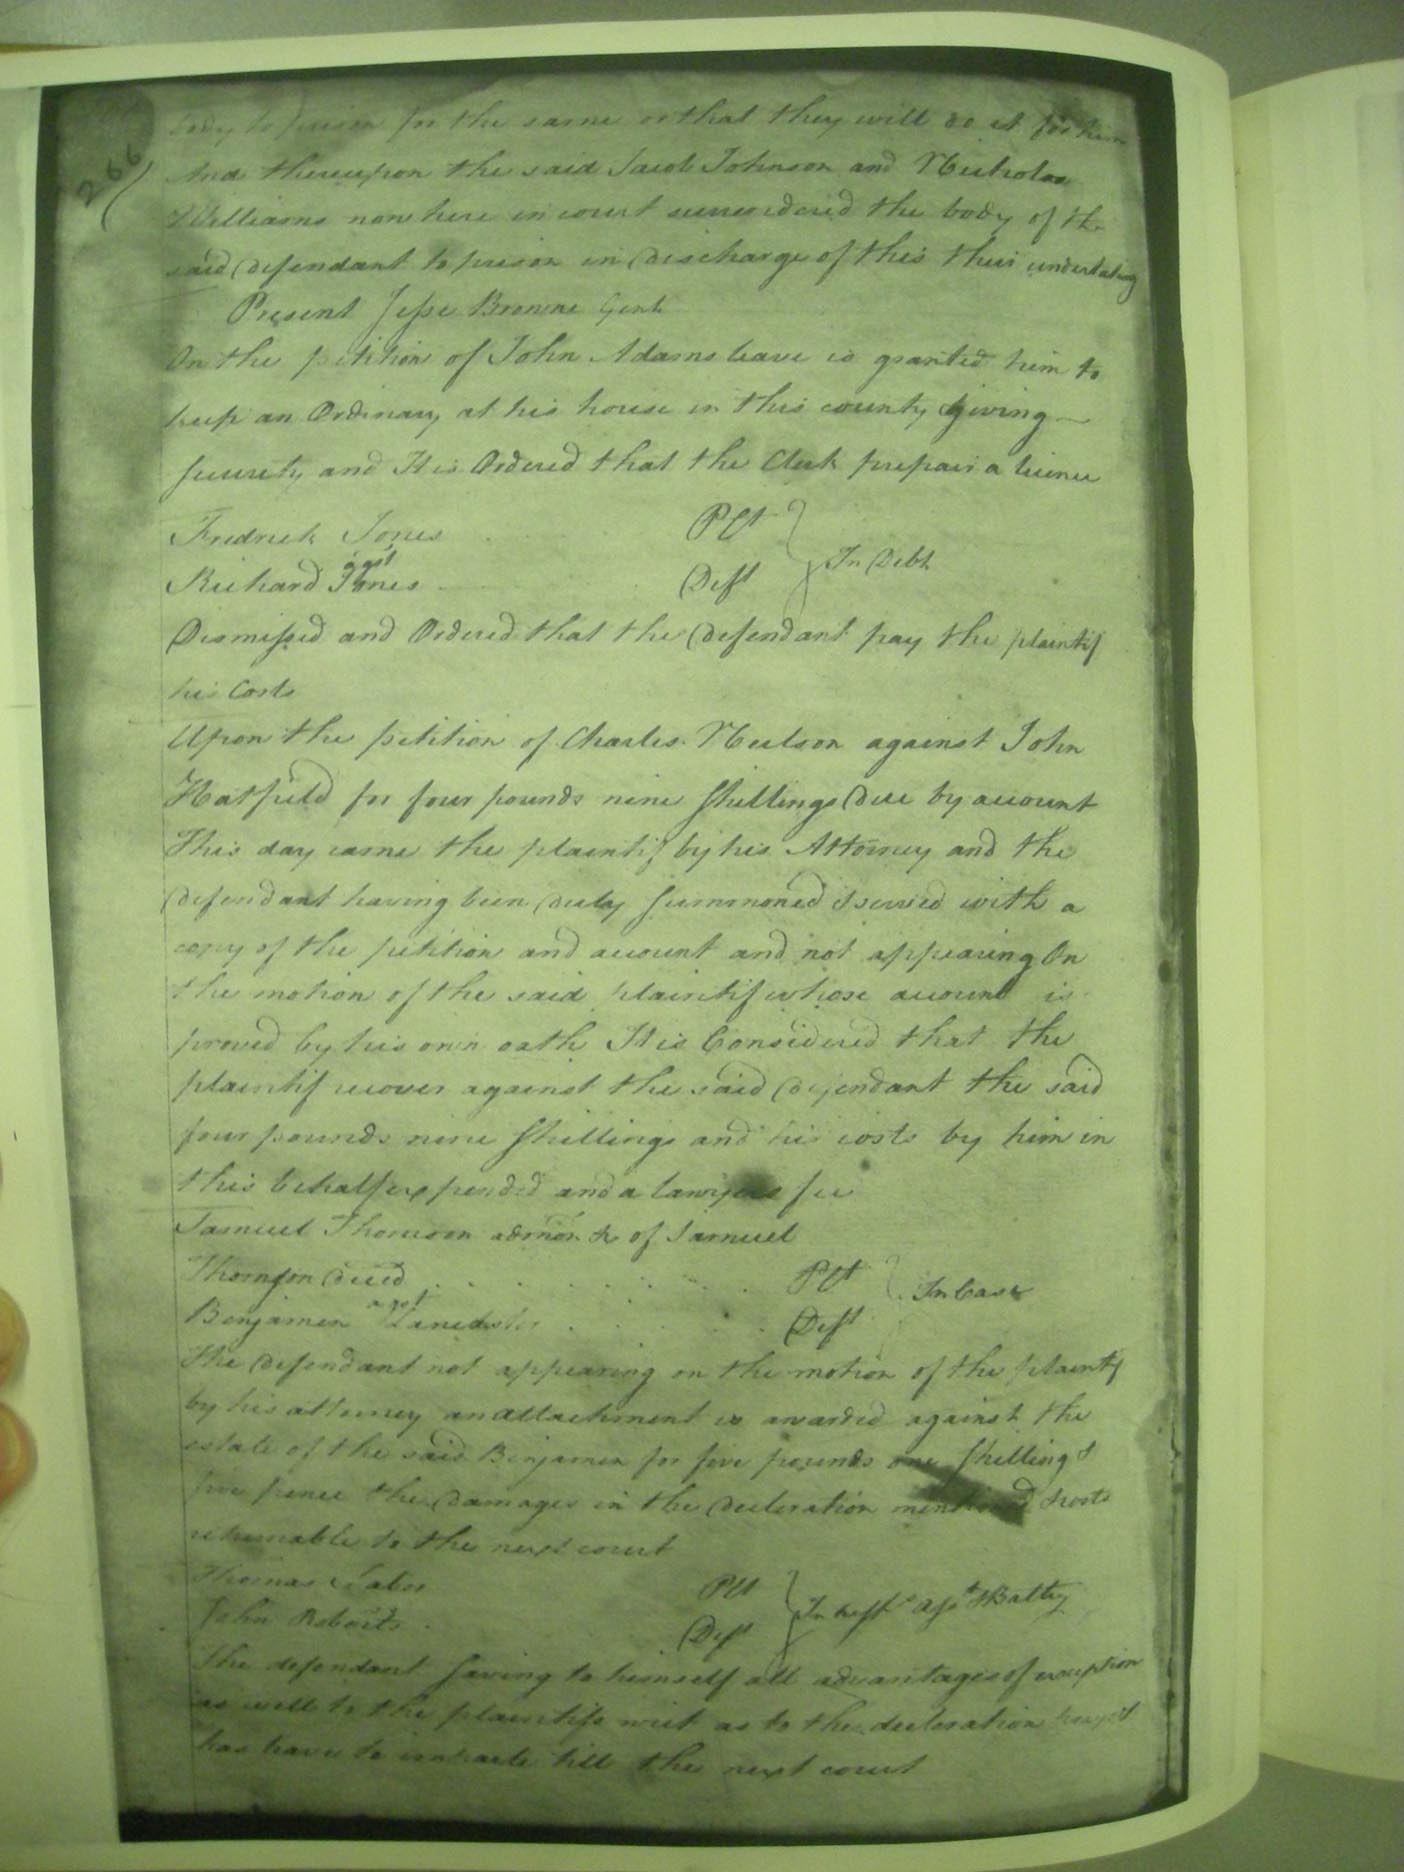 266
body to prison for the same or that they will do it for him
And thereupon the said Jacob Johnson and Nicholas
Williams now here in court surrendered the body of the
said defendant to prison in discharge of this their undertaking
Present Jesse Browne Gent
On the petition of John Adams leave is granted him to
keep an Ordinary at his house in this county giving
security and It is Ordered that the Clerk prepair a licence
Fredrick Jones Plt
agst In Debt
Richard Jones Deft
Dismissed and Ordered that the defendant pay the plaintif
his Costs
Upon the petition of Charles Neilson against John
Hatfield for four pounds nine shillings due by account
This day came the plaintif by his Attorney and the
defendant having been duly summoned & served with a
copy of the petition and account and not appearing On
the motion of the said plaintif whose account is
proved by his own oath It is Considered that the
plaintif recover against the said defendant the said
four pounds nine shillings and his costs by him in
this behalf expended and a lawyers fee
Samuel Thomson admor &c of Samuel
Thomson deced Plt
agst In Case
Benjamin Lancaster Deft
The defendant not appearing on the motion of the plaintif
by his attorney an attachment is awarded against the
estate of the said Benjamin for five pounds one shilling &
five pence the damages in the decleration mentioned & costs
returnable to the next court
Thomas Plt
In Asst & Battry
John Roberts Deft
The defendant saving to himself all advantages of exception
as well to the plaintifs writ as to the decleration
has leave to imparle till the next court